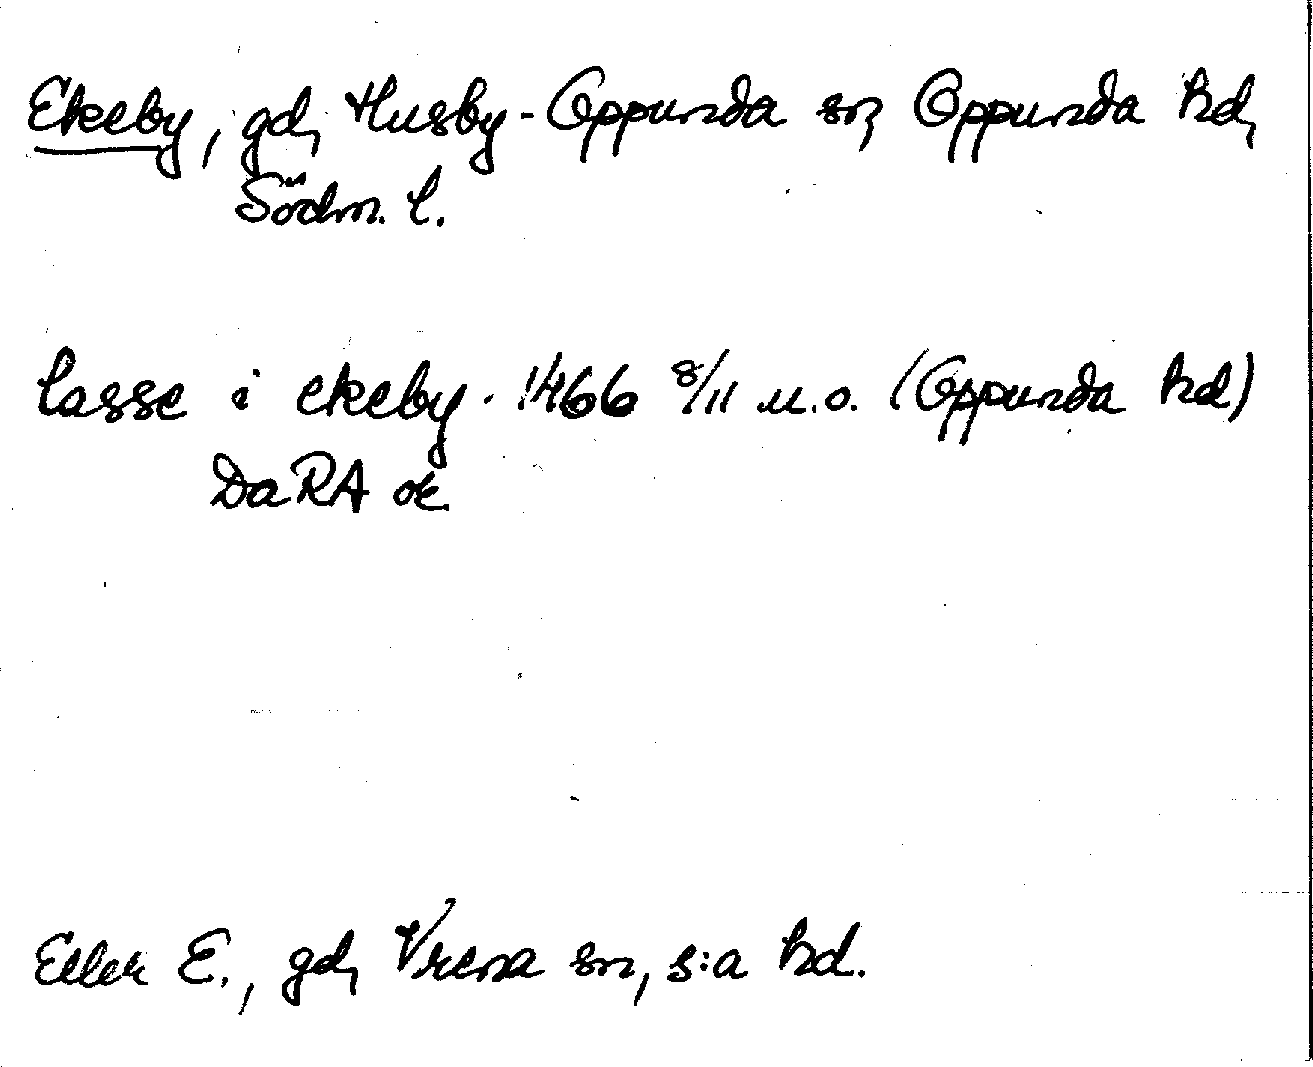 Ekeby, gd, Husby-Oppunda sn, Oppunda hd,
Södm. l.
lasse i ekeby. 1466 8/11 u.o. (Oppunda hd)
DaRA or.
Eller E., gd, Vrena sn, s:a hd.